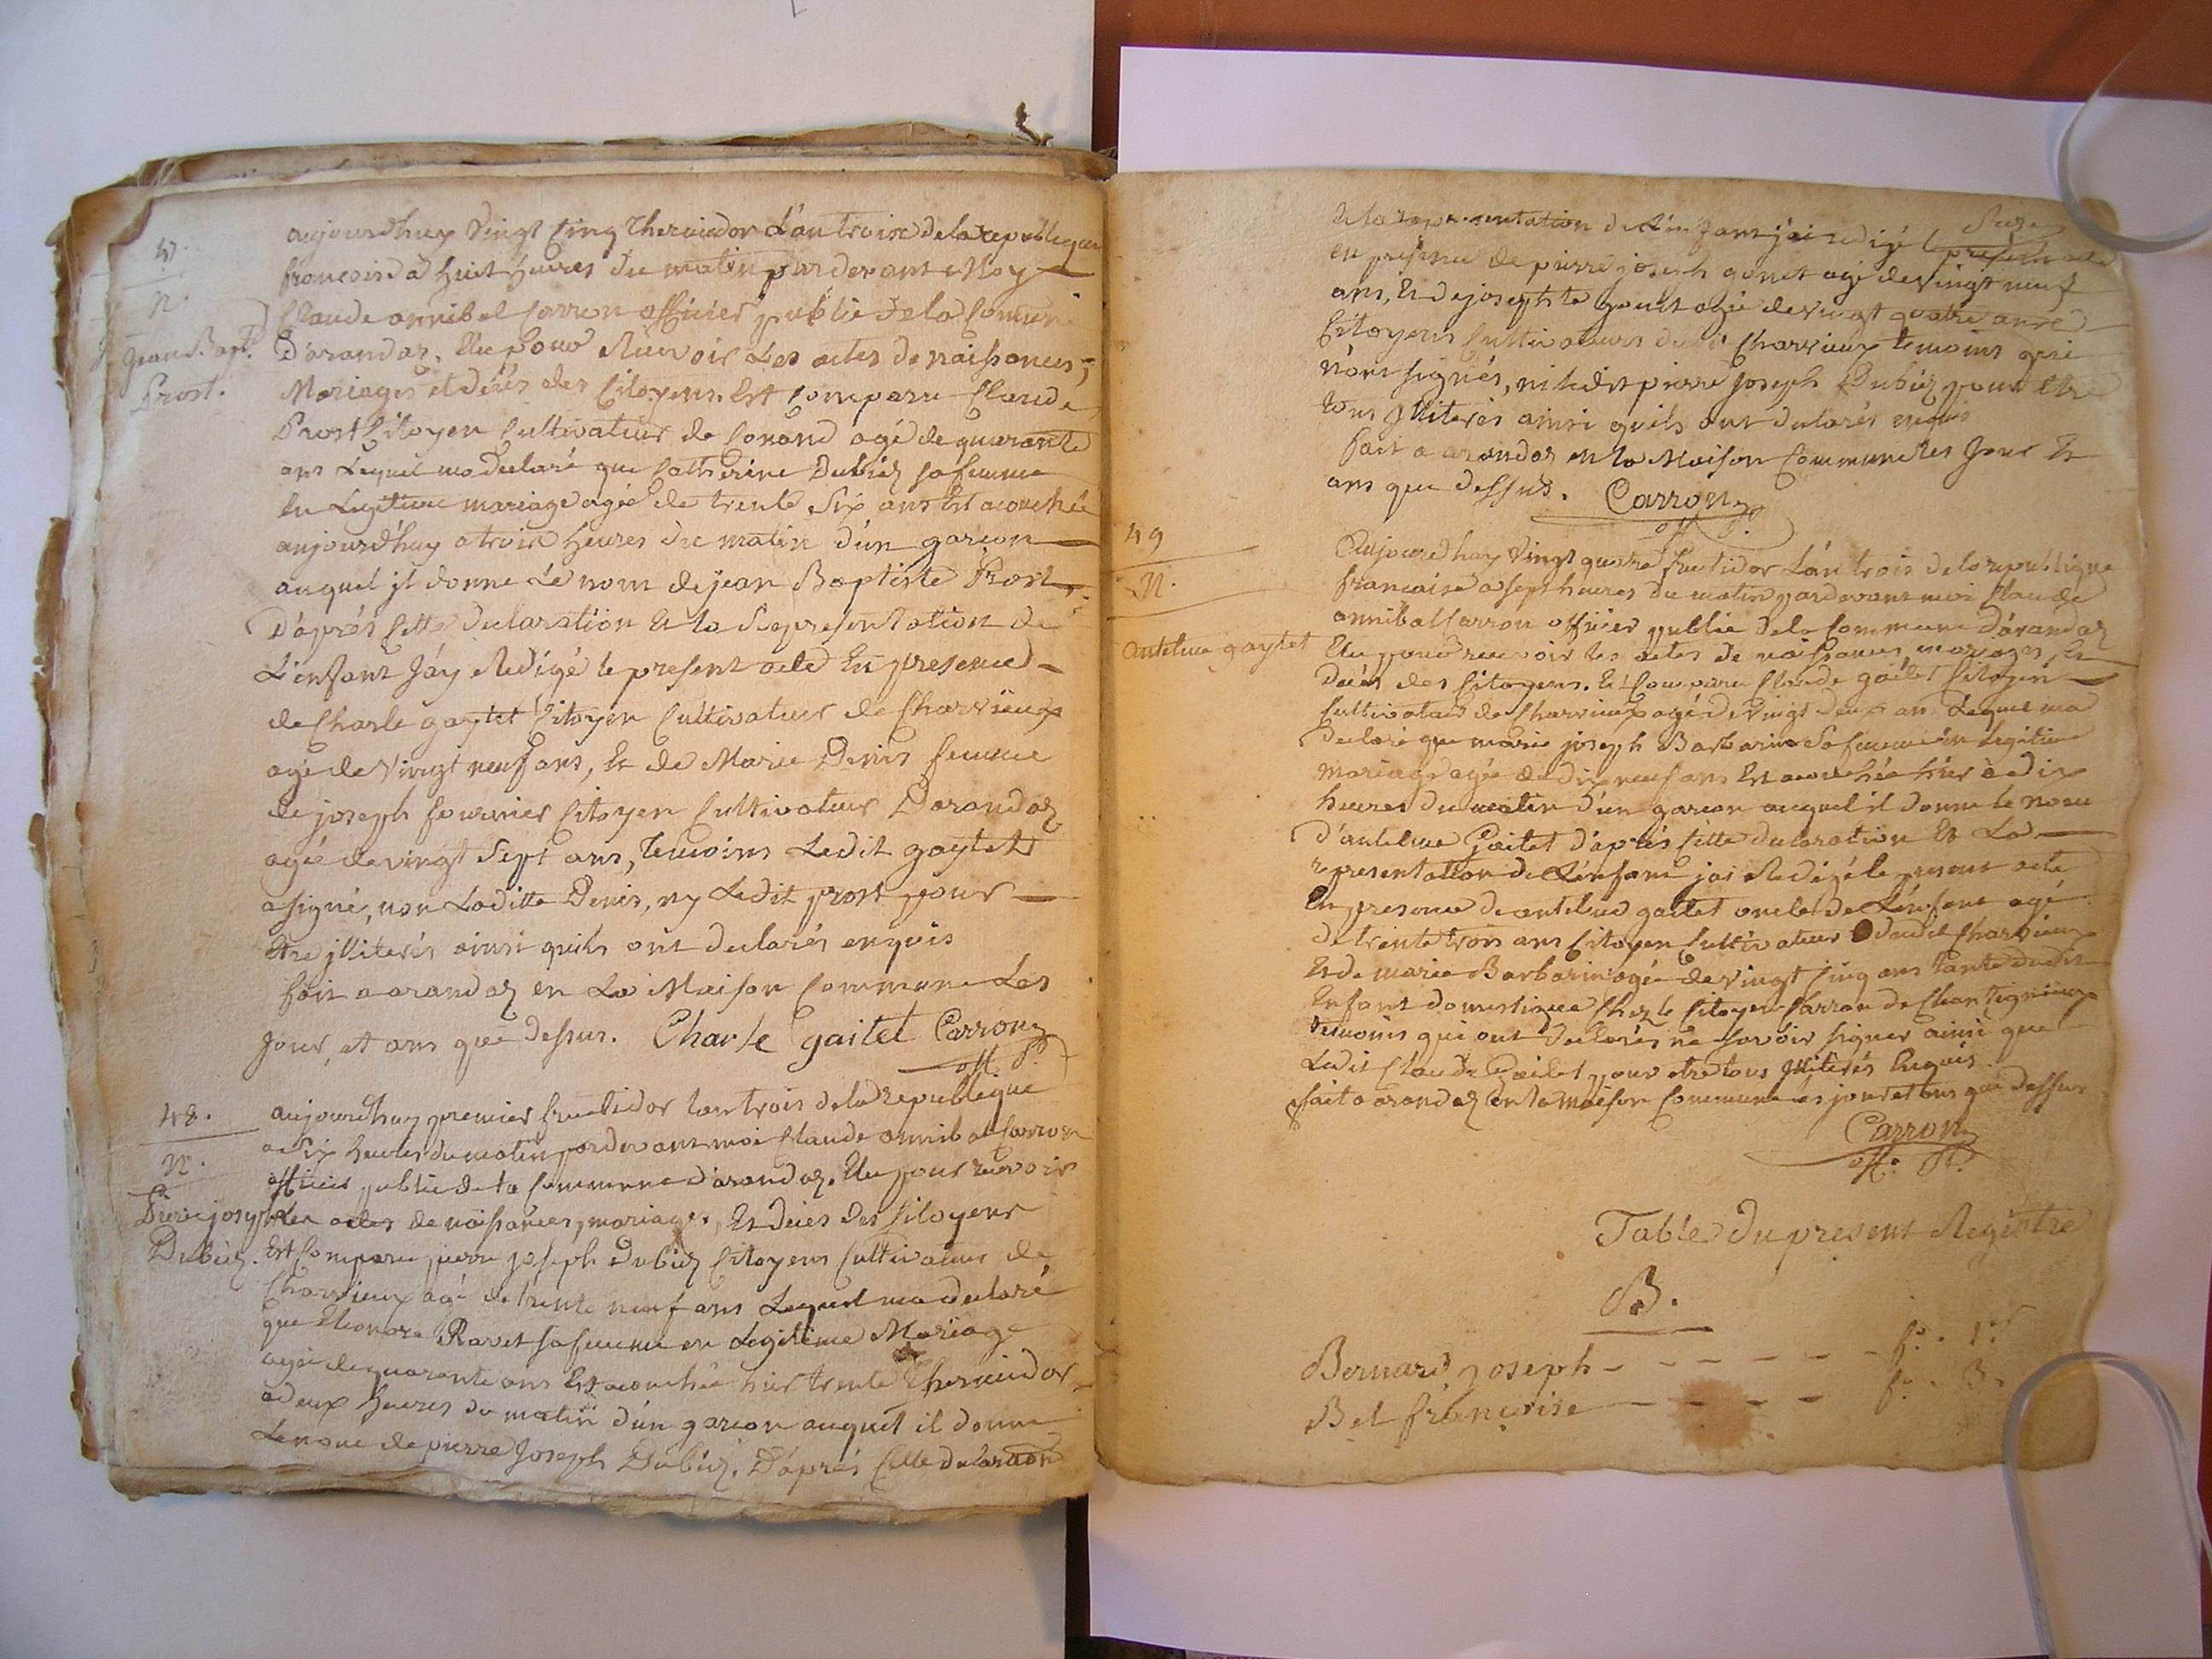 47.
n.
Jean Bapt.
Prost.
aujourdhuy vingt cinq thermidor L'an troix de la republique
francoise a huit heures du matin par devant Moy
Claude annibal Carron officier public de la Comune
D'arandaz, Elu pour Recevoir Les actes de naissances,
Mariages et décés des Citoyens. Est comparu Claude
Prost Citoyen Cultivateur de Conand agé de quarante
ans Lequel ma declaré que Catherine Dubiez sa femme
En Legitime mariage agée de trente Six ans Est acouchée
aujourdhuy a troix heures du matin d'un garcon
auquel jl donne Le nom de jean Baptiste Prost.
D'aprés Cette declaration Et la Representation de
L'enfant J'ay Redigé le present acte En presence
de Charle gaytet Citoyen Cultivateur de Charvieux
agé de vingt neuf ans, Et de Marie Denis femme
de joseph fournier Citoyen Cultivateur D'arandaz
agée de vingt Sept ans, temoins Ledit gaytet
a signé, non Laditte Denis, ny Ledit prost pour
Etre jlliterés ainsi quils ont declarés enquis
fait a arandaz en La Maison Commune Les
Jour, et ans que dessus. Charle gaitet Carron
off. p.
48.
n.
Pierre joseph
Dubiez.
aujourdhuy premier fructidor lan trois de la republique
a Six heures du matin pardevant moi Claude annibal Carron
officier public de la Commune d'arandaz. Elu pour recevoir
Les actes de naissances, mariages, Et décés des Citoyens
Est Comparu pierre joseph Dubiez Citoyens Cultivateur de
Charvieux agé de trente neuf ans Lequel ma declaré
que Eleonore Ravet sa femme en Legitime Mariage
agée de quarante ans Est acouchée hier trente thermidor
a deux heures du matin d'un garcon auquel il donne
Le nom de pierre Joseph Dubiez. D'aprés Cette declaration
Et la representation de L'enfant j'ai redigé le present acte
en présence de pierre joseph gonet agé de vingt neuf
ans, Et de josephte gonet agée de vingt quatre ans
Citoyens Cultivateurs dudit Charvieux temoins qui
n'ont signés, ni ledit pierre Joseph Dubiez pour etre
tous jlliterés ainsi quils ont declarés enquis
fait a arandaz en la Maison Commune Les Jour Et
ans que dessus. Carron
off. p.
49
n.
Antelme gaytet
Aujourdhuy vingt quatre fructidor L'an trois de la republique
francaise a sept heures du matin pardevant moi Claude
annibal Carron officier public de la Commune d'arandaz
Elu pour recevoir les actes de naissances, mariages, Et
Décés des Citoyens. Est Comparu Claude gaitet Citoyen
Cultivateur de Charvieux agé de vingt deux an Lequel ma
declaré que marie joseph Barbarin sa femme en legitime
mariage agée de dix neuf ans Est acouchée hier à dix
heures du matin d'un garcon auquel il donne le nom
d'antelme Gaitet d'aprés cette declaration Et La
representation de L'enfant jai Redigé le present acte
En presence de antelme gaitet oncle de L'enfant agé
de trente trois ans Citoyen Cultivateur dudit Charvieux
Et de marie Barbarin agée de vingt cinq ans tante dudit
Enfant domestique Chez le Citoyen Carron de
temoins qui ont declarés ne savoir signer ainsi que
Ledit Claude Gaitet pour etre tous jlliterés Enquis
fait a arandaz en la maison Commune Les jour et ans que dessus
Carron
off. p.
Table du present Registre
B.
Bernard joseph - - - - - - fo. 1.
Bel françoise - - - - - fo. 3.